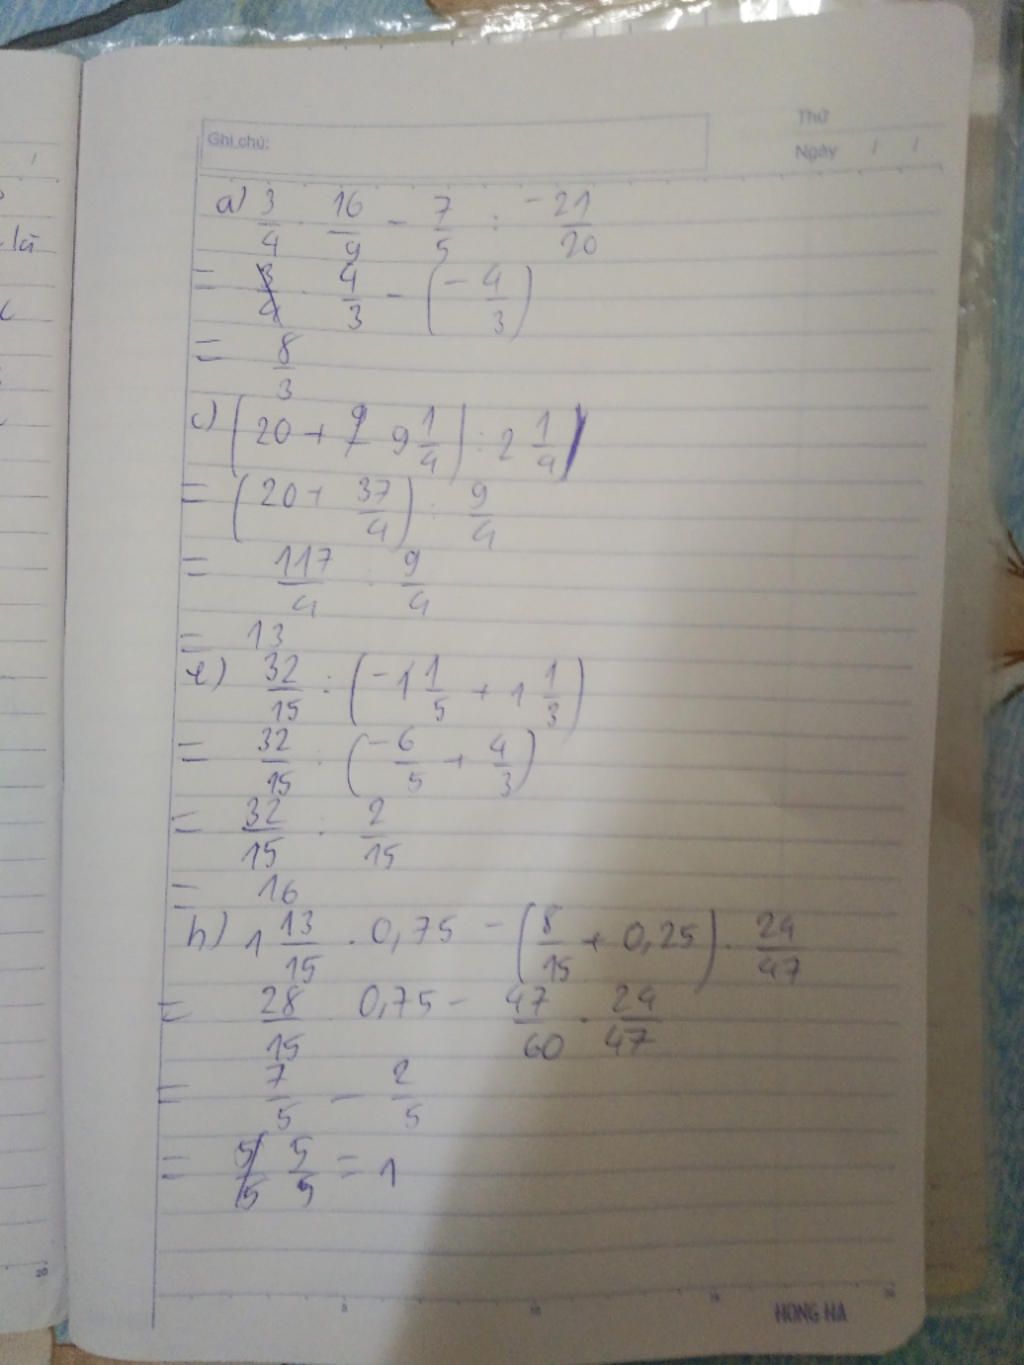 Thứ
Ghi chú:
Ngày / /
a) 3/4 . 16/9 - 7/5 : -21/20
= 4/3 - (-4/3)
= 8/3
c) (20 + 9 1/4) : 2 1/4
= (20 + 37/4) : 9/4
= 117/4 : 9/4
= 13
e) 32/15 : (-1 1/5 + 1 1/3)
= 32/15 : (-6/5 + 4/3)
= 32/15 : 2/15
= 16
h) 1 13/15 . 0,75 - (8/15 + 0,25) . 24/47
= 28/15 . 0,75 - 47/60 . 24/47
= 7/5 - 2/5
= 5/5 = 1
5 10 15 20
HONG HA
là
20